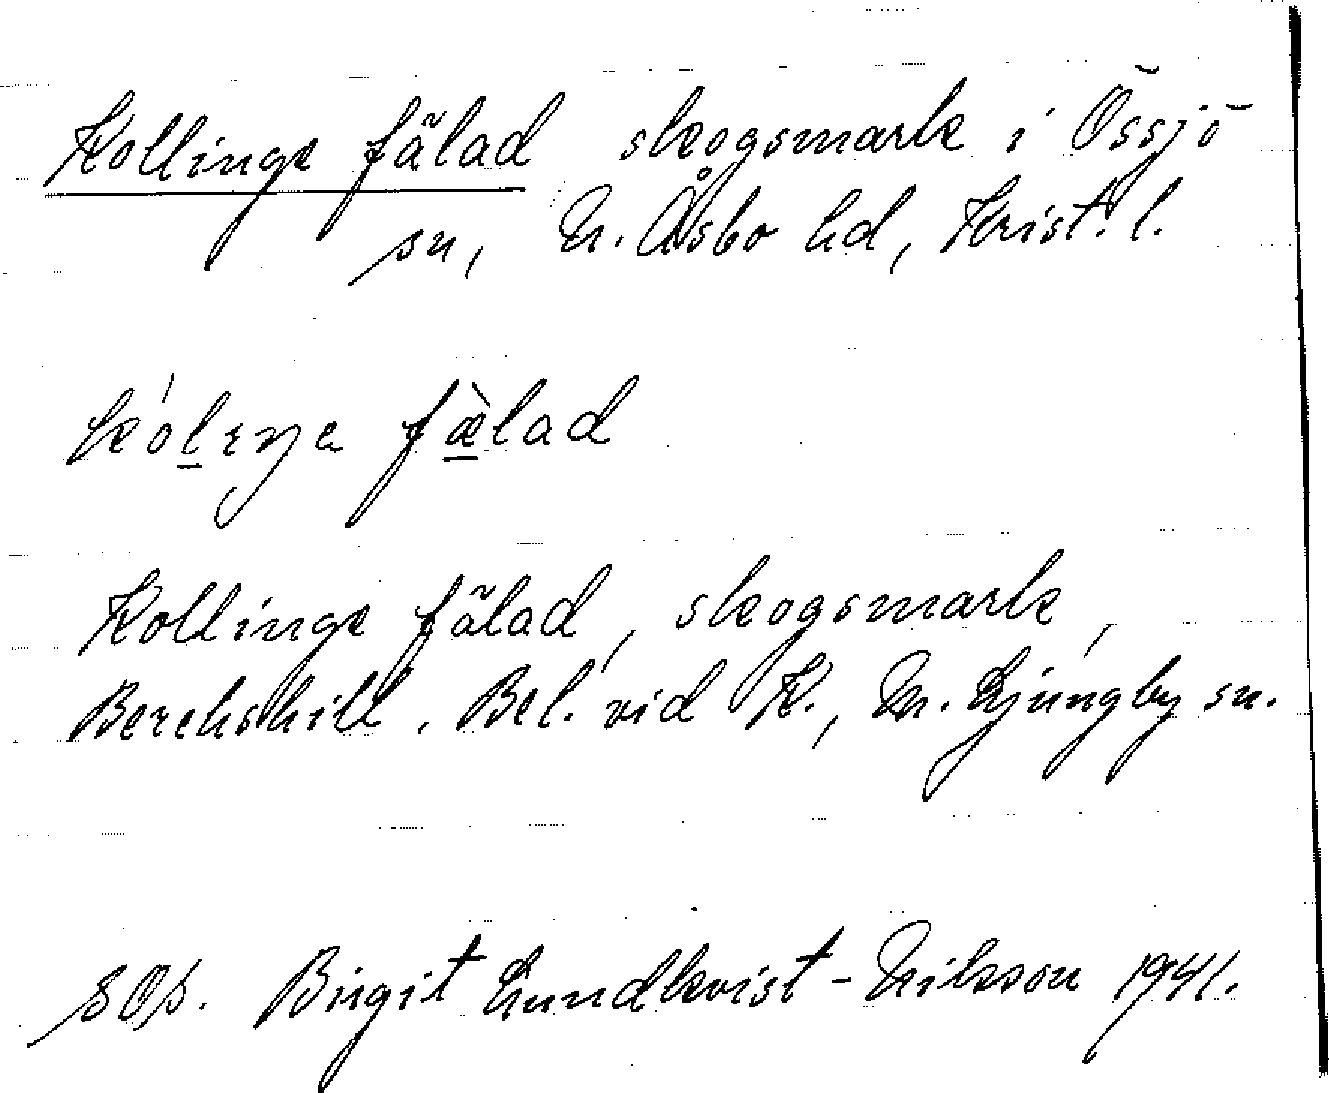 Kollinge fälad skogsmark i Össjö
sn, N. Åsbo hd, Krist. l.
fælad
Kollinge fälad, skogsmark,
Berehskill. Bel. vid K., N. Ljungby sn.
SOp. Birgit Lundkvist-Nilsson 1941.